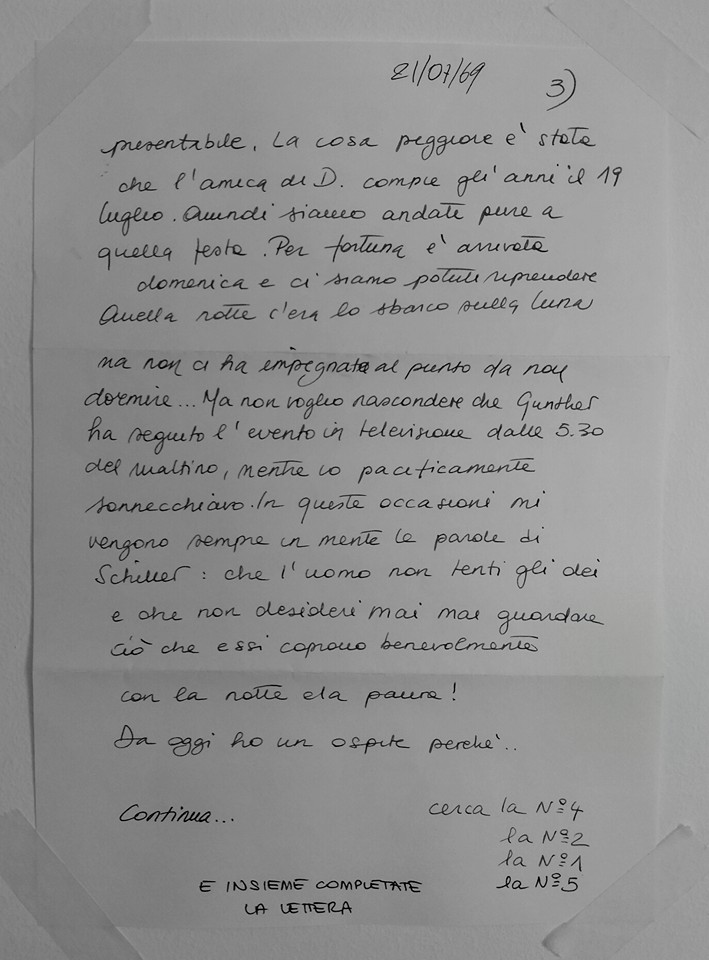 21/07/69
3)
presentabile. La cosa peggiore è stata
che l'amica di D. compie gli anni il 19
luglio. Quindi siamo andate pure a
quella festa. Per fortuna è arrivata
domenica e ci siamo potuti riprendere
Quella notte c'era lo sbarco sulla luna
ma non ci ha impegnata al punto da non
dormire... Ma non voglio nascondere che Gunther
ha seguito l'evento in televisione dalle 5.30
del mattino, mentre io pacificamente
sonnecchiavo. In queste occasioni mi
vengono sempre in mente le parole di
Schiller: che l'uomo non tenti gli dei
e che non desideri mai mai guardare
ciò che essi coprono benevolmente
con la notte e la paura!
Da oggi ho un ospite perchè..
Continua...
cerca la Nº4
la Nº2
la Nº1
la Nº5
E INSIEME COMPLETATE
LA LETTERA